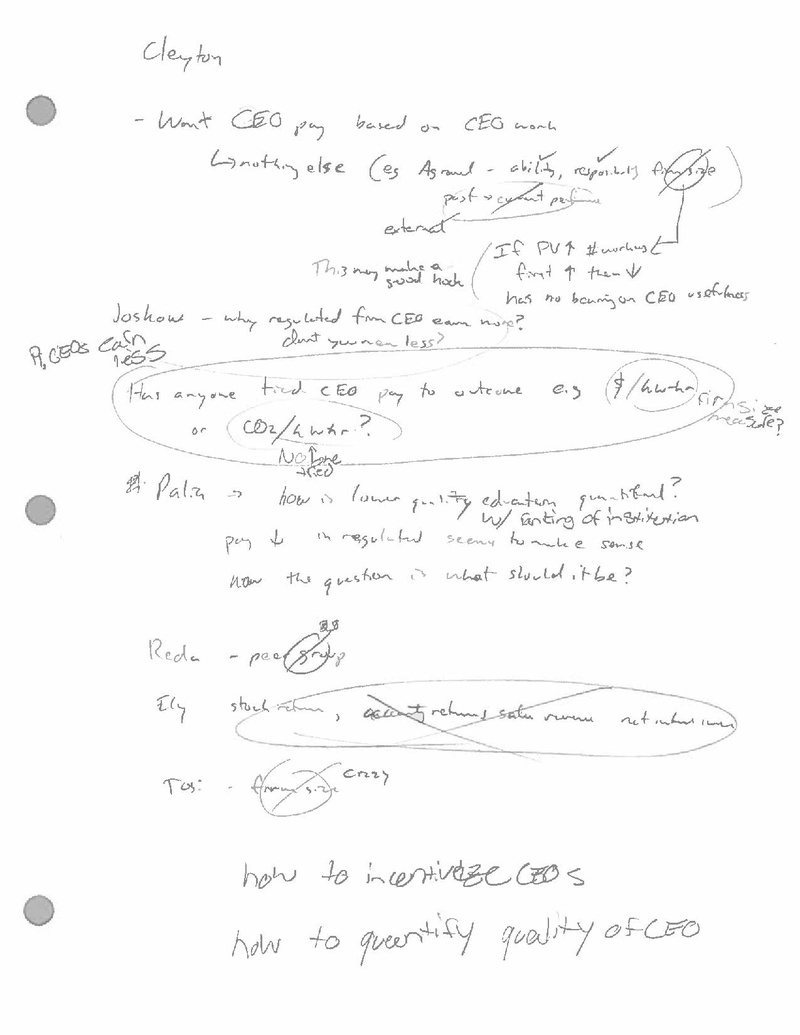 Clayton
- Want CEO pay based on CEO work
↳ nothing else (eg Agrawal - ability, responsibility firm size)
past → current performance
external
If PV↑ # workers
first ↑ then ↓
has no bearing on CEO usefulness
This may make a
good hook
Joskow - why regulated firm CEO earn more?
don't you mean less?
R, CEOs earn
less
Has anyone tied CEO pay to outcome e.g. $/kwhr
or CO2/kwhr?
firm size
measure?
No one
tied
Palia → how is lower quality education quantified?
w/ ranking of institution
pay ↓ in regulated seems to make sense
now the question is what should it be?
Reda - peer group
Ely stock return, returns sales revenue net
Tosi - firm size crazy
how to incentivize CEOs
how to quantify quality of CEO